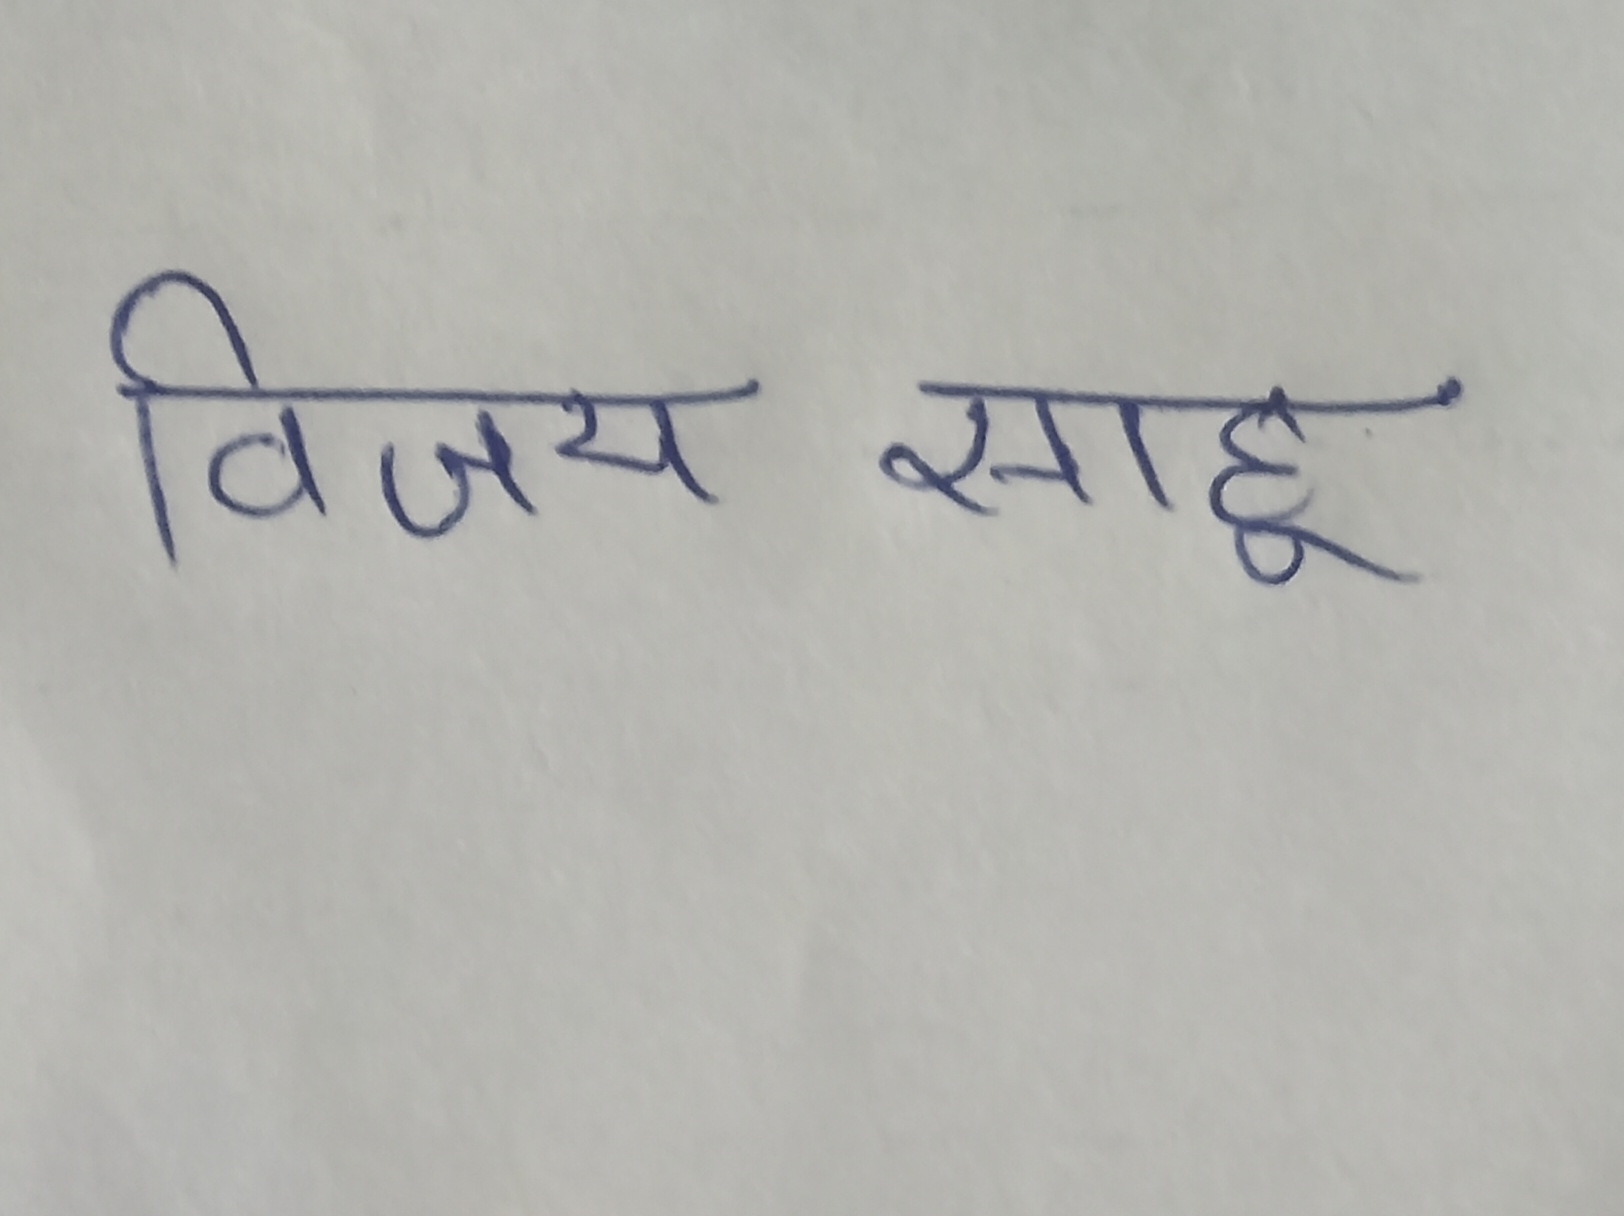 विजय साहू